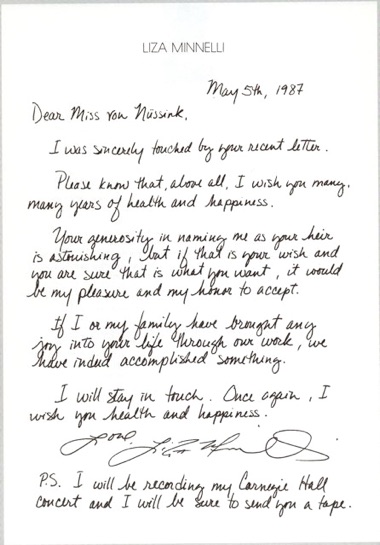 LIZA MINNELLI
May 5th, 1987
Dear Miss von Nüssink,
I was sincerely touched by your recent letter.
Please know that, above all, I wish you many,
many years of health and happiness.
Your generosity in naming me as your heir
is astonishing, but if that is your wish and
you are sure that is what you want, it would
be my pleasure and my honor to accept.
If I or my family have brought any
joy into your life through our work, we
have indeed accomplished something.
I will stay in touch. Once again, I
wish you health and happiness.
Love, Liza Minnelli
P.S. I will be recording my Carnegie Hall
concert and I will be sure to send you a tape.